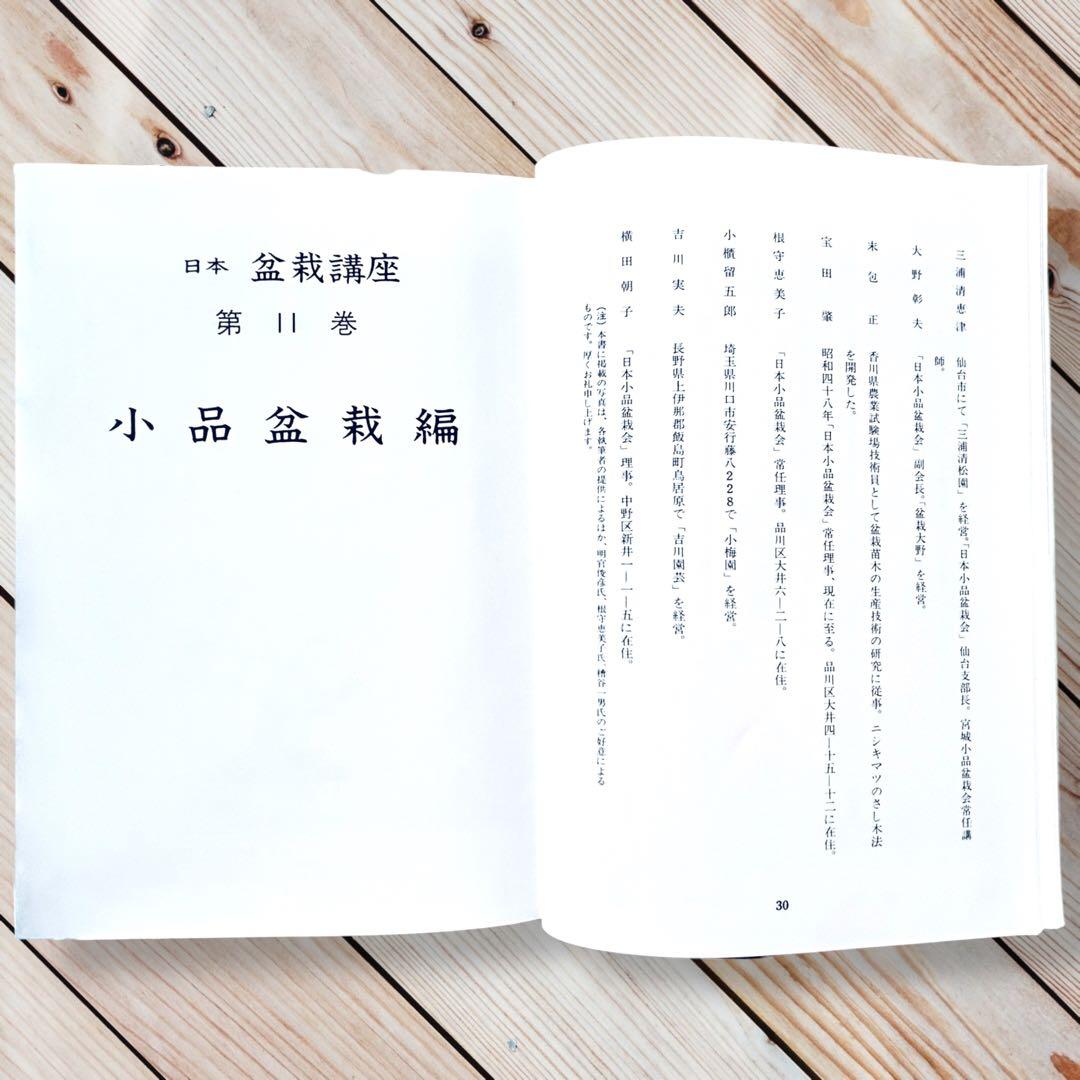 日本 盆栽講座
第 11 巻
小品盆栽編
三浦清恵津 仙台市にて「三浦清松園」を経営。「日本小品盆栽会」仙台支部長。宮城小品盆栽会常任講
師。
大野彰夫 「日本小品盆栽会」副会長。「盆栽大野」を経営。
末包 正 香川県農業試験場技術員として盆栽苗木の生産技術の研究に従事。ニシキマツのさし木法
を開発した。
宝田 肇 昭和四十八年「日本小品盆栽会」常任理事、現在に至る。品川区大井四―十五―十二に在住。
根守恵美子 「日本小品盆栽会」常任理事。品川区大井六―二―八に在住。
小櫃留五郎 埼玉県川口市安行藤八228で「小梅園」を経営。
吉川実夫 長野県上伊那郡飯島町鳥居原で「吉川園芸」を経営。
横田朝子 「日本小品盆栽会」理事。中野区新井一―一―五に在住。
(注)本書に掲載の写真は、各執筆者の提供によるほか、明官俊彦氏、根守恵美子氏、糟谷一男氏のご好意による
ものです。厚くお礼申し上げます。
30